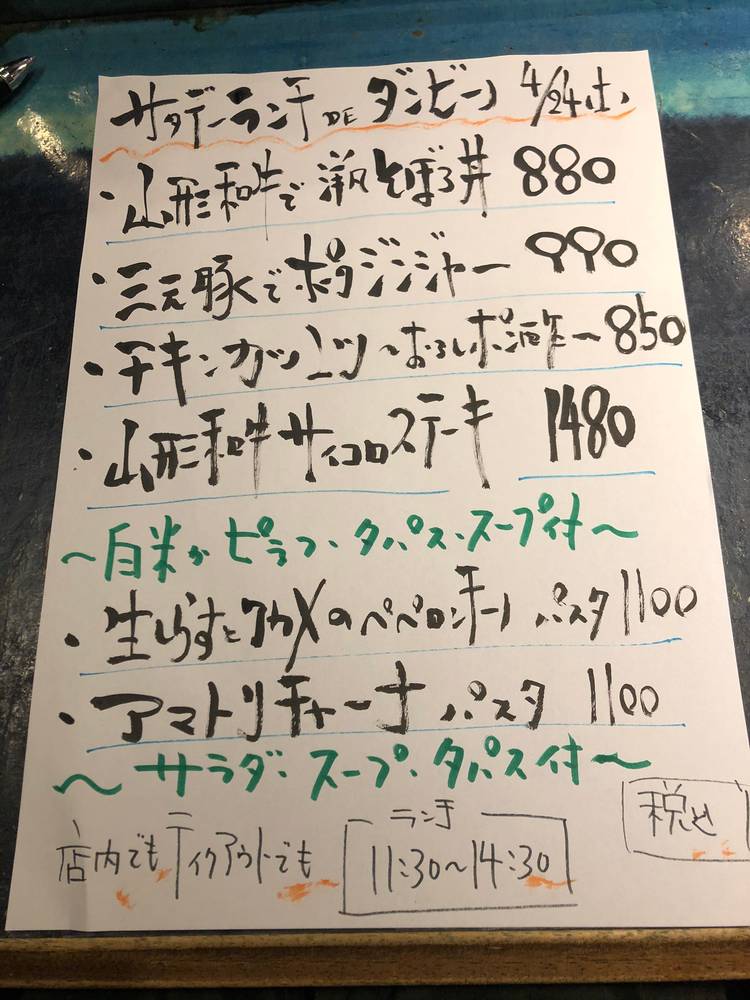 サタデーランチ DE ダンビーノ 4/24(土)
・山形和牛で 洋風そぼろ丼 880
・三元豚で ポークジンジャー 990
・チキンカツレツ 〜おろしポン酢〜 850
・山形和牛 サイコロステーキ 1480
〜白米か ピラフ・タパス・スープ付〜
・生しらすとワカメのペペロンチーノ パスタ 1100
・アマトリチャーナ パスタ 1100
〜サラダ・スープ・タパス付〜
店内でもテイクアウトでも
ランチ
11:30〜14:30
税込